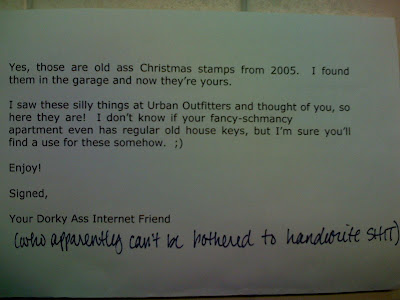 Yes, those are old ass Christmas stamps from 2005.  I found
them in the garage and now they're yours.
I saw these silly things at Urban Outfitters and thought of you, so
here they are!  I don't know if your fancy-schmancy
apartment even has regular old house keys, but I'm sure you'll
find a use for these somehow.  ;)
Enjoy!
Signed,
Your Dorky Ass Internet Friend
(who apparently can't be bothered to handwrite SHIT)